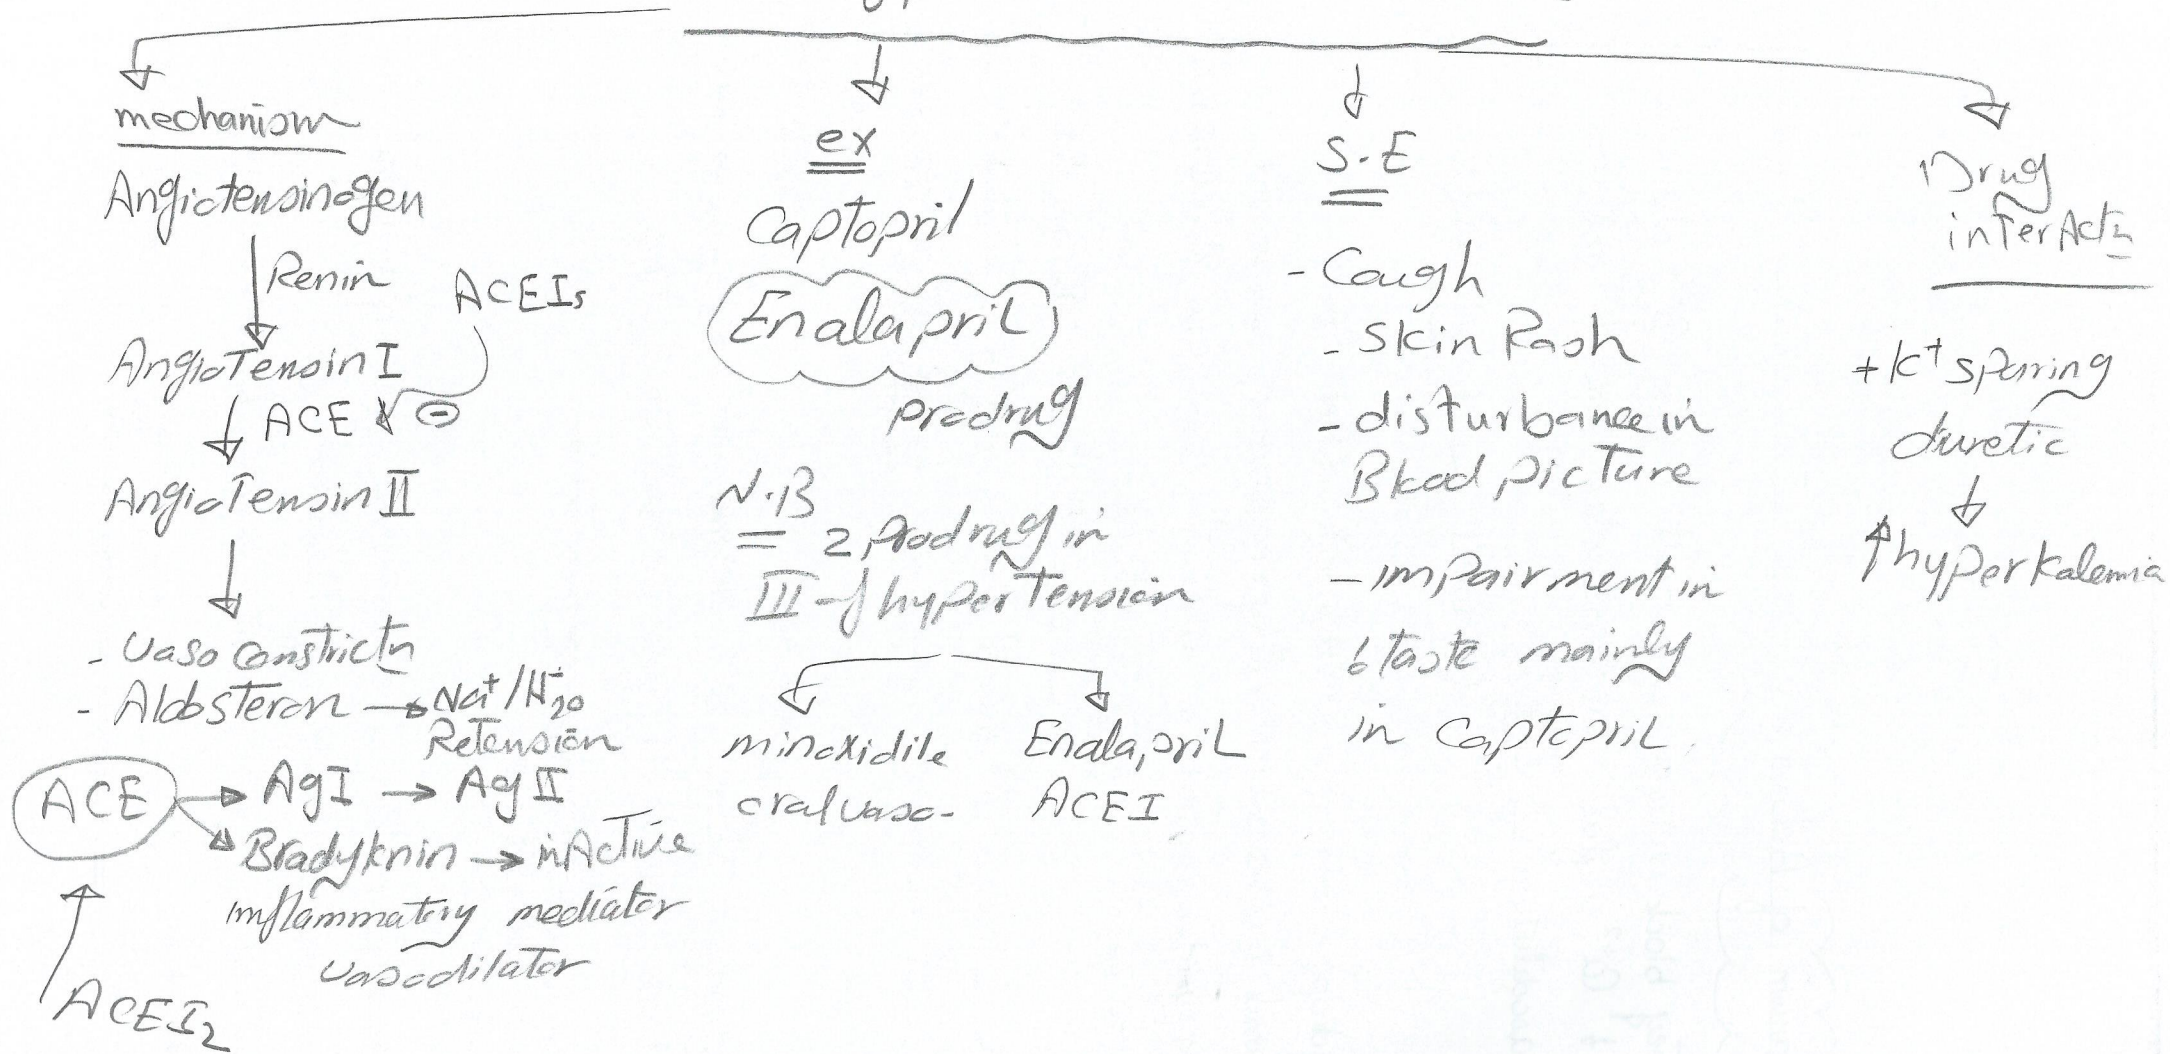 mechanism
Angiotensinogen
Renin
ACEIs
Angiotensin I
ACE ⊖
Angiotensin II
- Vaso Constrictn
- Aldosteron → Na+/H2O
Retension
ACE → AgI → Ag II
Bradyknin → inActive
inflammatory mediator
vasodilator
ACEIs
ex
Captopril
Enalapril
prodrug
N.B
2 prodrug in
III of hypertension
minoxidile
oral vaso-
Enalapril
ACEI
S.E
- Cough
- Skin Rash
- disturbance in
Blood picture
- impairment in
taste mainly
in Captopril
Drug
interActn
+ K+ sparing
diuretic
↑ hyperkalemia